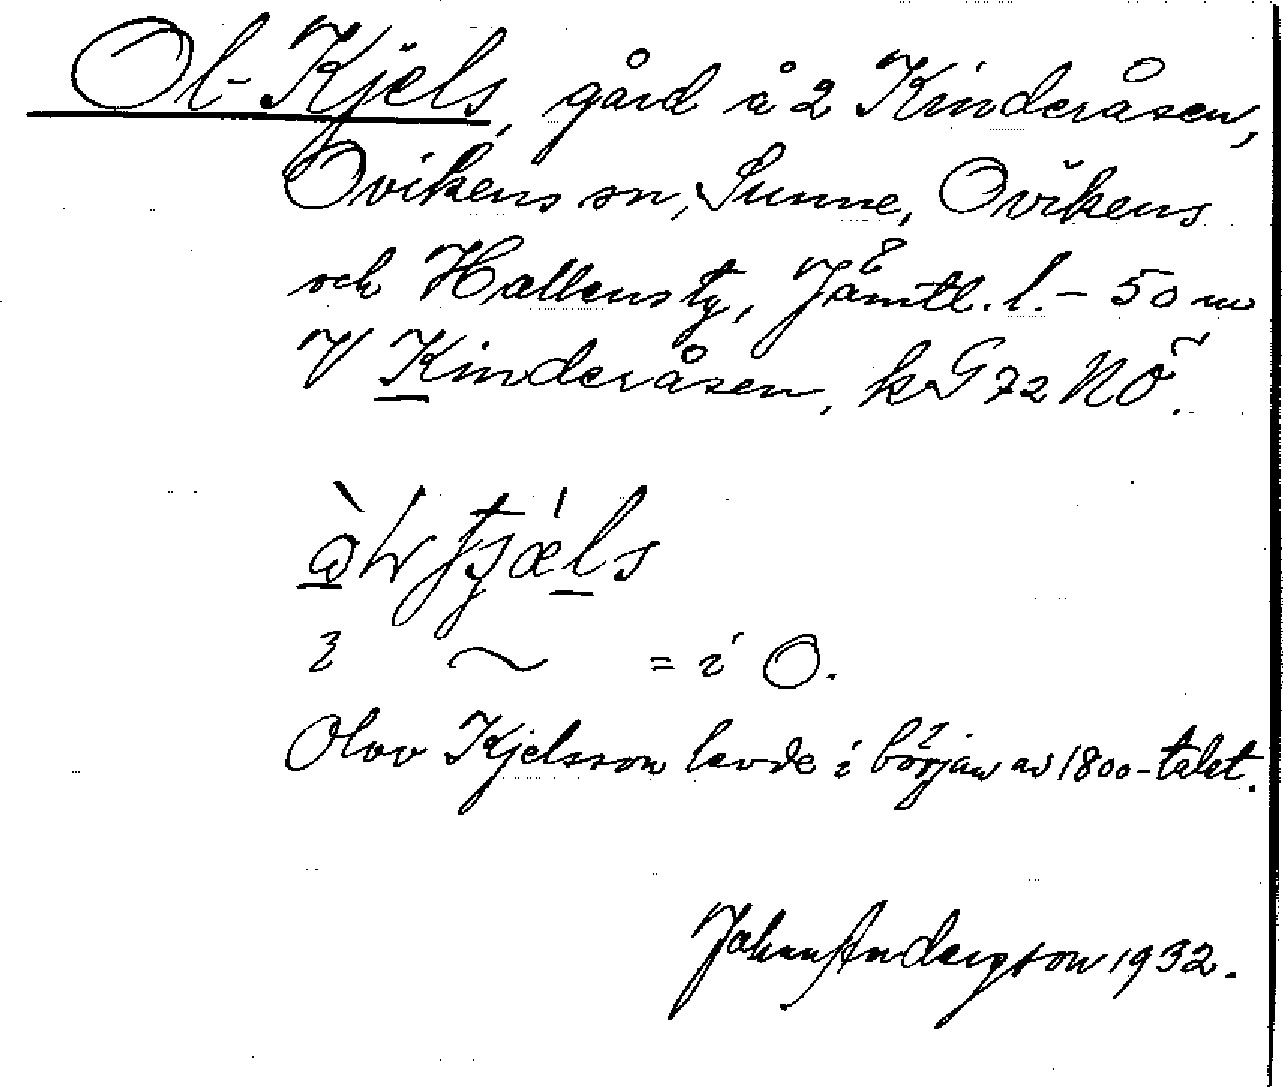 Ol-Kjels, gård å 2 Kinderåsen,
Ovikens sn, Sunne, Ovikens
och Hallens tg, Jämtl. l. – 50 m
V Kinderåsen, k G 72 NÖ.
= i O.
Olov Kjelsson levde i början av 1800-talet.
Johan Anderson 1932.